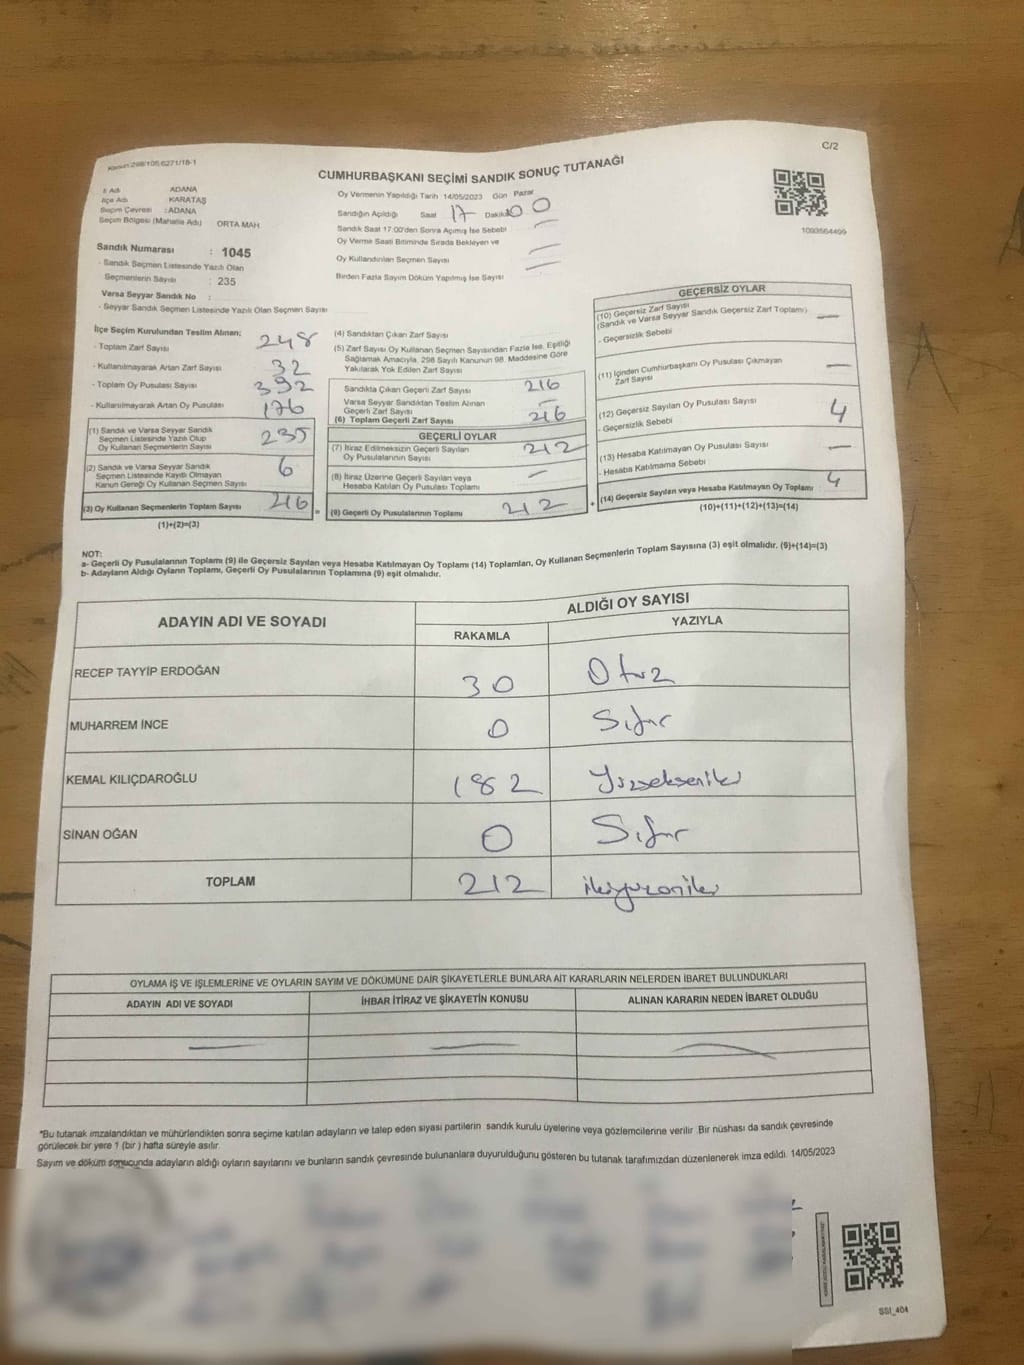 Kanun:298/105,6271/18-1
C/2
CUMHURBAŞKANI SEÇİMİ SANDIK SONUÇ TUTANAĞI
İl Adı ADANA
İlçe Adı KARATAŞ
Seçim Çevresi :ADANA
Seçim Bölgesi (Mahalle Adı) ORTA MAH.
Sandık Numarası : 1045
- Sandık Seçmen Listesinde Yazılı Olan
Seçmenlerin Sayısı : 235
Varsa Seyyar Sandık No :
- Seyyar Sandık Seçmen Listesinde Yazılı Olan Seçmen Sayısı
Oy Vermenin Yapıldığı Tarih 14/05/2023 Gün Pazar
Sandığın Açıldığı Saat 17 Dakika 00
Sandık Saat 17:00'den Sonra Açmış İse Sebebi —
Oy Verme Saati Bitiminde Sırada Bekleyen ve
Oy Kullandırılan Seçmen Sayısı —
Birden Fazla Sayım Döküm Yapılmış İse Sayısı —
1093564499
İlçe Seçim Kurulundan Teslim Alınan;
- Toplam Zarf Sayısı 248
- Kullanılmayarak Artan Zarf Sayısı 32
- Toplam Oy Pusulası Sayısı 392
- Kullanılmayarak Artan Oy Pusulası 176
(1) Sandık ve Varsa Seyyar Sandık
Seçmen Listesinde Yazılı Olup
Oy Kullanan Seçmenlerin Sayısı 235
(2) Sandık ve Varsa Seyyar Sandık
Seçmen Listesinde Kaydı Olmayan
Kanun Gereği Oy Kullanan Seçmen Sayısı 6
(3) Oy Kullanan Seçmenlerin Toplam Sayısı 216
=
(1)+(2)=(3)
(4) Sandıktan Çıkan Zarf Sayısı
(5) Zarf Sayısı Oy Kullanan Seçmen Sayısından Fazla İse, Eşitliği
Sağlamak Amacıyla, 298 Sayılı Kanunun 98. Maddesine Göre
Yakılarak Yok Edilen Zarf Sayısı
Sandıkta Çıkan Geçerli Zarf Sayısı 216
Varsa Seyyar Sandıktan Teslim Alınan
Geçerli Zarf Sayısı —
(6) Toplam Geçerli Zarf Sayısı 216
GEÇERLİ OYLAR
(7) İtiraz Edilmeksizin Geçerli Sayılan
Oy Pusulalarının Sayısı 212
(8) İtiraz Üzerine Geçerli Sayılan veya
Hesaba Katılan Oy Pusulası Toplamı —
(9) Geçerli Oy Pusulalarının Toplamı 212
+
GEÇERSİZ OYLAR
(10) Geçersiz Zarf Sayısı
(Sandık ve Varsa Seyyar Sandık Geçersiz Zarf Toplamı) —
- Geçersizlik Sebebi
(11) İçinden Cumhurbaşkanı Oy Pusulası Çıkmayan
Zarf Sayısı —
(12) Geçersiz Sayılan Oy Pusulası Sayısı 4
- Geçersizlik Sebebi
(13) Hesaba Katılmayan Oy Pusulası Sayısı —
- Hesaba Katılmama Sebebi
(14) Geçersiz Sayılan veya Hesaba Katılmayan Oy Toplamı 4
(10)+(11)+(12)+(13)=(14)
NOT:
a- Geçerli Oy Pusulalarının Toplamı (9) ile Geçersiz Sayılan veya Hesaba Katılmayan Oy Toplamı (14) Toplamları, Oy Kullanan Seçmenlerin Toplam Sayısına (3) eşit olmalıdır. (9)+(14)=(3)
b- Adayların Aldığı Oyların Toplamı, Geçerli Oy Pusulalarının Toplamına (9) eşit olmalıdır.
ADAYIN ADI VE SOYADI ALDIĞI OY SAYISI
RAKAMLA YAZIYLA
RECEP TAYYİP ERDOĞAN 30 Otuz
MUHARREM İNCE 0 Sıfır
KEMAL KILIÇDAROĞLU 182 Yüzsekseniki
SİNAN OĞAN 0 Sıfır
TOPLAM 212 ikiyüzoniki
OYLAMA İŞ VE İŞLEMLERİNE VE OYLARIN SAYIM VE DÖKÜMÜNE DAİR ŞİKAYETLERLE BUNLARA AİT KARARLARIN NELERDEN İBARET BULUNDUKLARI
ADAYIN ADI VE SOYADI İHBAR İTİRAZ VE ŞİKAYETİN KONUSU ALINAN KARARIN NEDEN İBARET OLDUĞU
— — —
*Bu tutanak imzalandıktan ve mühürlendikten sonra seçime katılan adayların ve talep eden siyasi partilerin sandık kurulu üyelerine veya gözlemcilerine verilir .Bir nüshası da sandık çevresinde
görülecek bir yere 1 (bir ) hafta süreyle asılır.
Sayım ve döküm sonucunda adayların aldığı oyların sayılarını ve bunların sandık çevresinde bulunanlara duyurulduğunu gösteren bu tutanak tarafımızdan düzenlenerek imza edildi. 14/05/2023
SSI_404